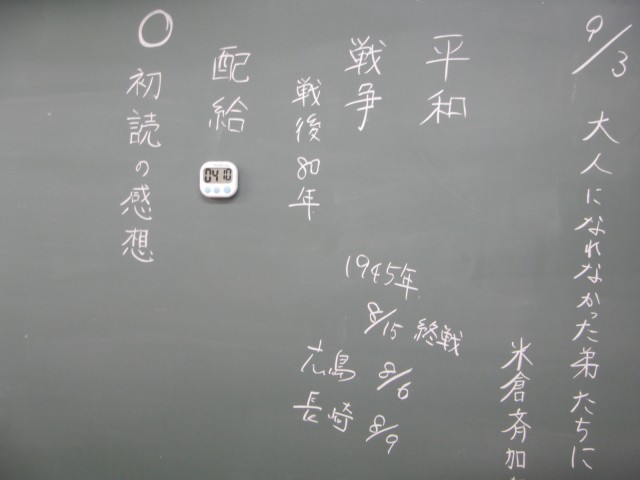 9/3
大人になれなかった弟たちに
米倉斉加
平和
戦争
戦後80年
1945年
8/15 終戦
広島 8/6
長崎 8/9
配給
04 10
○ 初読の感想